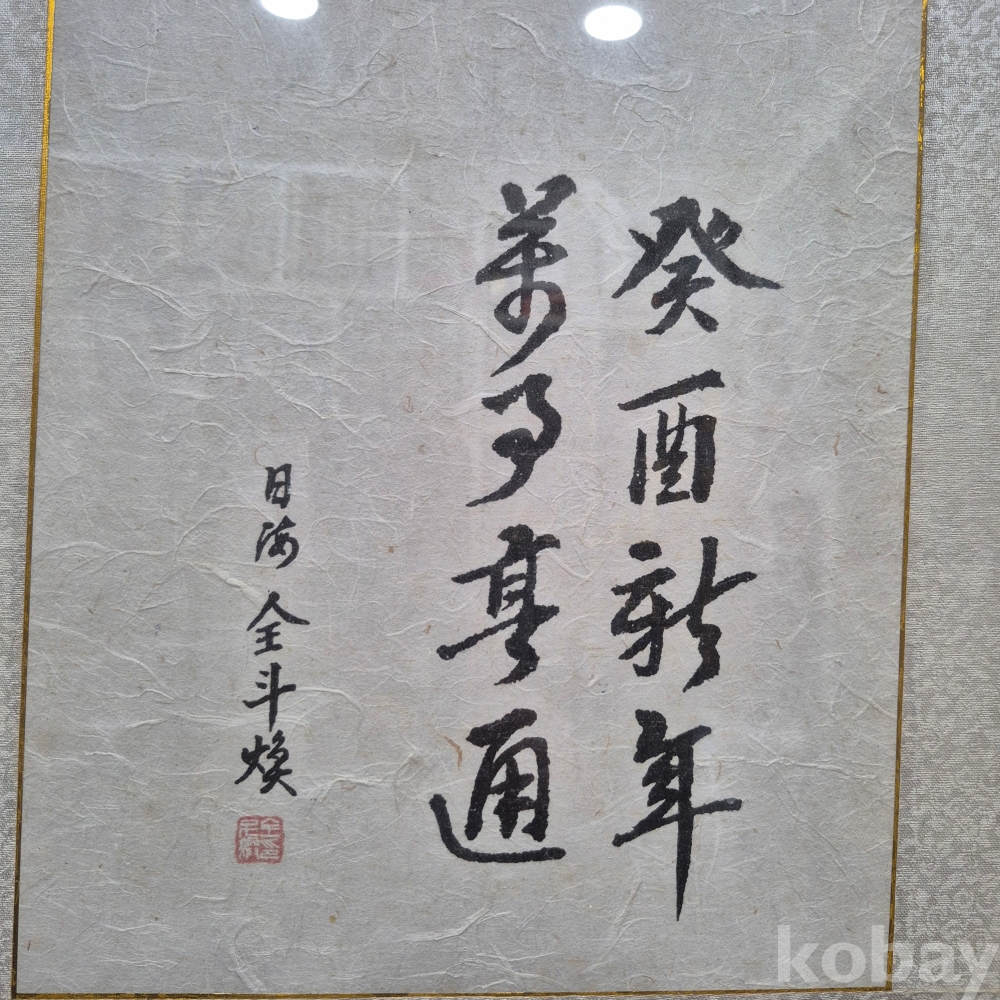 癸酉新年
萬事亨通
日海 全斗煥
kobay